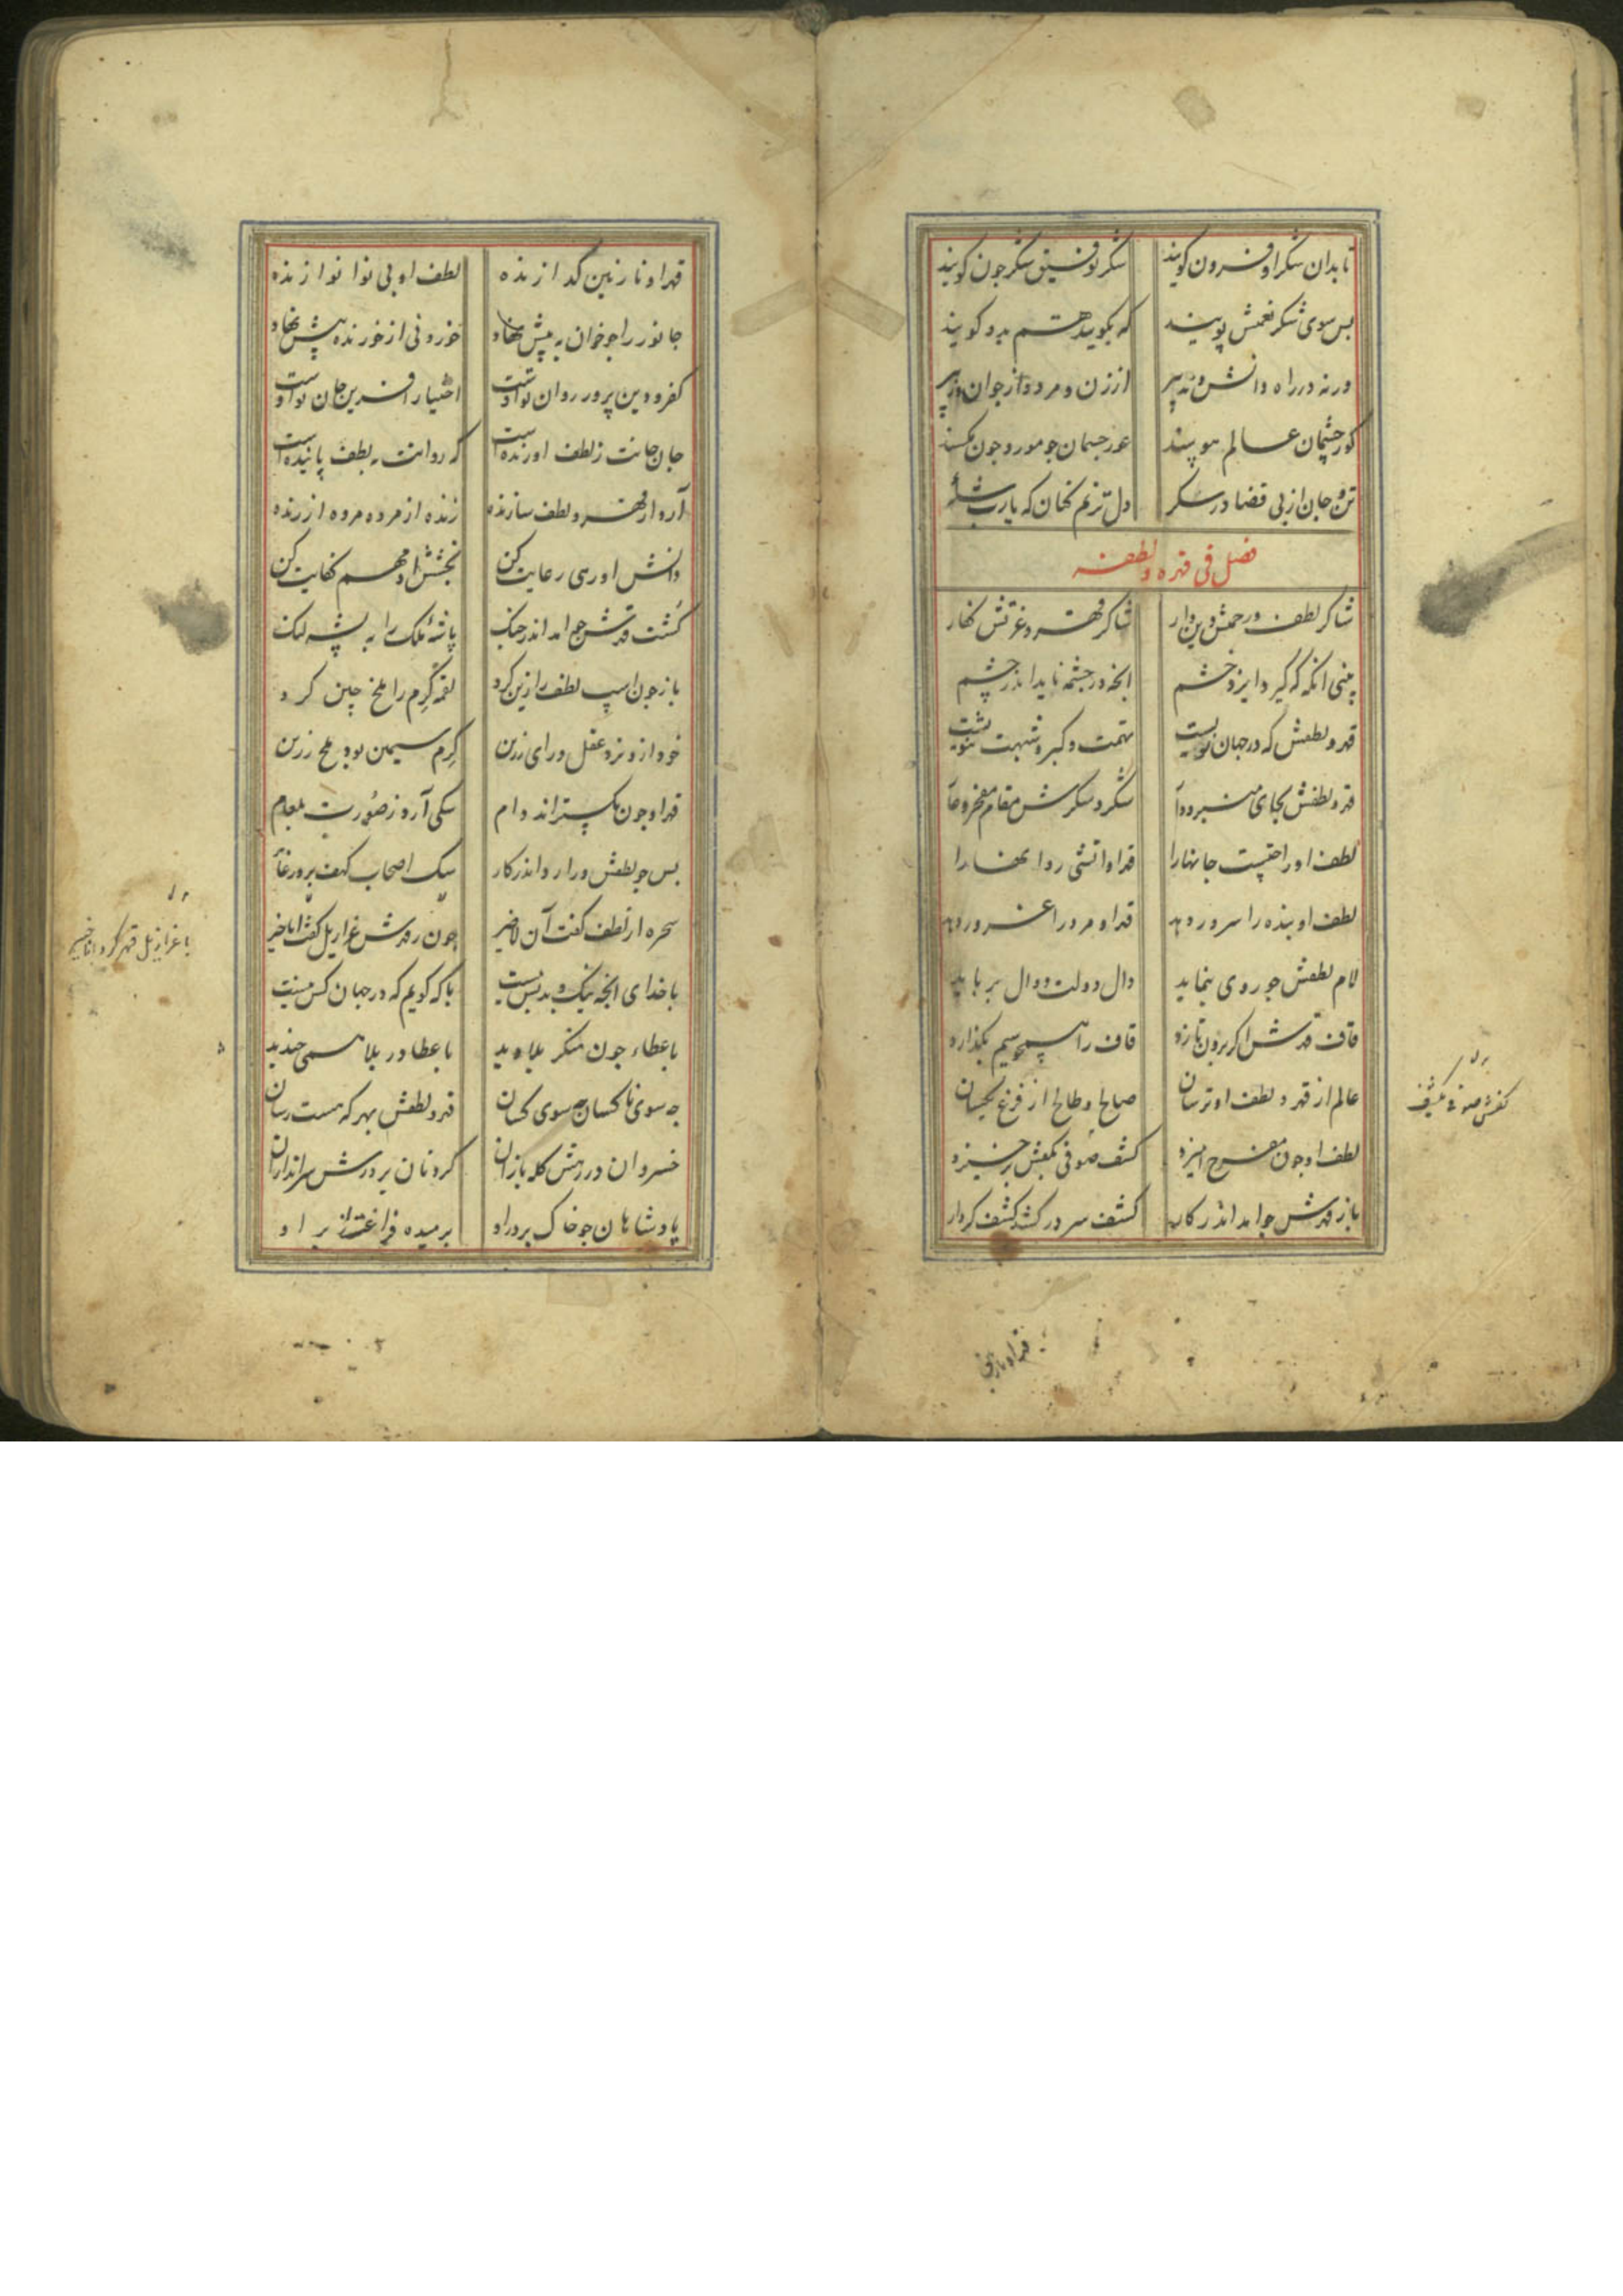 تا بدان شکر او فزون گویند شکر توفیق شکر چون گویند
بس سوی شکر نعمتش پویند که بگویند هم بدو گویند
ورنه در راه دانش و تدبیر از زن و مرد و از جوان و پیر
کور چشمان عالم هوسند عور جسمان چو مور و چون مکسند
تن و جان از پی قضا در شکر دل ترنم کنان که یارب شکر
فصل فی قهره و لطفه
شاکر لطف و رحمتش دین دار شاکر قهر و غرتش کفار
بینی انکه که گیرد ایزد خشم انچه در چشمه ناید اندر چشم
قهر و لطفش که در جهان نویست تهمت و کبر و شبهت ثنویست
قهر و لطفش بجای منبر و دار شکر و سکرش مقام مفخر و عار
لطف او راحتیست جانهارا قهر او اتشی روانهارا
لطف او بنده را سرور دهد قهر او مرد را غرور دهد
لام لطفش چو روی بنماید دال دولت دوال برباید
قاف قهرش اگر برون تازد قاف را همچو سیم بگدازد
عالم از قهر و لطف او ترسان صالح و طالح از فزع یکسان
لطف او چون مفرح امیزد کشف صوفی بکفش برخیزد
باز قهرش چو امد اندر کار کشف سر در کشد کشف کردار
کفش صوفی بکشف
قهر او نازنین
قهر او نازنین گدازنده لطف او بی نوا نوازنده
جانور را چو خوان به پیش نهاد خوردنی از خورنده بیش نهاد
کفر و دین پرور روان تو اوست اختیار افرین جان تو اوست
جان جانت ز لطف اورنده است که روانت به لطف پاینده است
آرد از قهر و لطف سازنده زنده از مرده مرده از زنده
دانش او رهی رعایت کن بخشش او مهم کفایت کن
کشت قهرش چو امد اندر جنگ پاشهٔ ملک را به پشه لنگ
باز چون اسب لطف را زین کرد لقمه کرم را ملخ چین کرد
خود از و نزد عقل و رای رزین کرم سیمین بود ملخ زرین
قهر او چون بگستراند دام سگی آرد ز صورت بلعام
بس چو لطفش درارد اندر کار سگ اصحاب کهف برد ز غار
سحره از لطف گفت آن لاضیر چون ز قهرش عزازیل گفت اناخیر
با عزازیل قهر کرد اناخیر
با خدای انچه نیک و بد بس نیست با که گویم که در جهان کس نیست
با عطا در بلا همی خندید
چه سوی ناکسان چه سوی کسان قهر و لطفش بهر که هست رسان
خسروان در رهش کله بازان گردنان بر درش سراندازان
پادشاهان چو خاک بر در او برمیده فراغنه از بر او